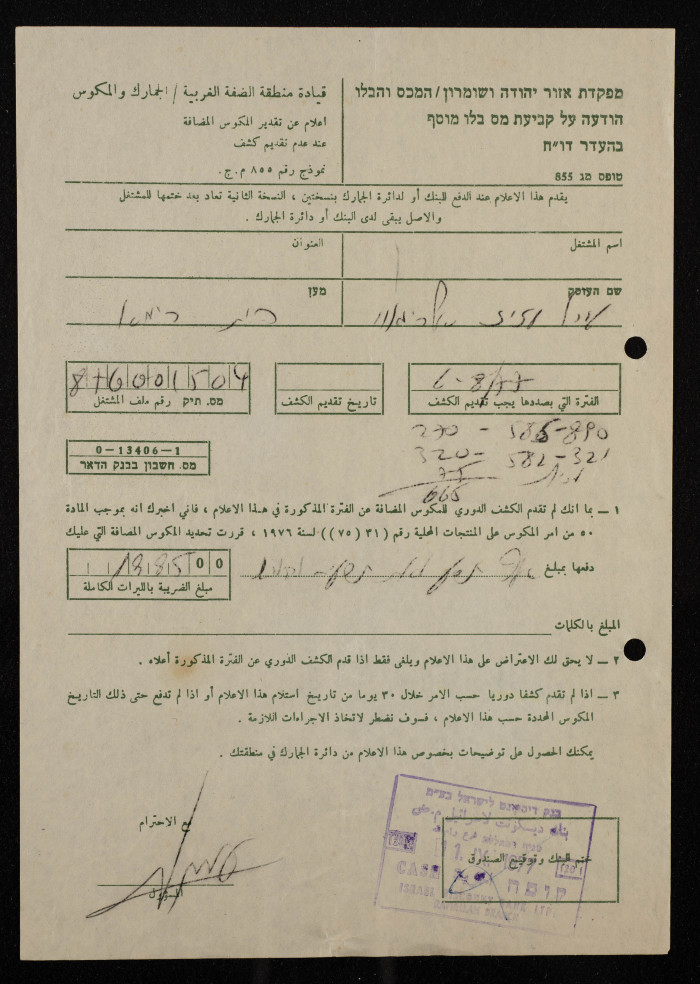 מפקדת אזור יהודה ושומרון/המכס והבלו
הודעה על קביעת מס בלו מוסף
בהעדר דו״ח
טופס מג 855
قيادة منطقة الضفة الغربية / الجمارك والمكوس
اعلام عن تقدير المكوس المضافة
عند عدم تقديم كشف
نموذج رقم ٨٥٥ م.ج.
يقدم هذا الاعلام عند الدفع للبنك أو لدائرة الجمارك بنسختين ، النسخة الثانية تعاد بعد ختمها للمشتغل
والاصل يبقى لدى البنك أو دائرة الجمارك .
اسم المشتغل
العنوان
שם העוסק
מען
6-8/77
الفترة التي بصددها يجب تقديم الكشف
تاريخ تقديم الكشف
876001504
מס. תיק رقم ملف المشتغل
270 - 585-890
320- 582-321
75
665
0-13406-1
מס. חשבון בבנק הדאר
١ — بما انك لم تقدم الكشف الدوري للمكوس المضافة عن الفترة المذكورة في هذا الاعلام ، فاني اخبرك انه بموجب المادة
٥٠ من امر المكوس على المنتجات المحلية رقم (٣١ (٧٥)) لسنة ١٩٧٦ ، قررت تحديد المكوس المضافة التي عليك
دفعها بمبلغ
00
مبلغ الضريبة بالليرات الكاملة
المبلغ بالكلمات
٢ — لا يحق لك الاعتراض على هذا الاعلام ويلغى فقط اذا قدم الكشف الدوري عن الفترة المذكورة أعلاه .
٣ — اذا لم تقدم كشفا دوريا حسب الامر خلال ٣٠ يوما من تاريخ استلام هذا الاعلام أو اذا لم تدفع حتى ذلك التاريخ
المكوس المحددة حسب هذا الاعلام ، فسوف نضطر لاتخاذ الاجراءات اللازمة .
يمكنك الحصول على توضيحات بخصوص هذا الاعلام من دائرة الجمارك في منطقتك .
مع الاحترام
المسؤول
ختم البنك وتوقيع الصندوق
בנק דיסקונט לישראל בע״מ
بنك ديسكونت لاسرائيل م.ض
1977
קופה
CASH
ISRAEL DISCOUNT BANK LTD.
RAMALLAH BRANCH